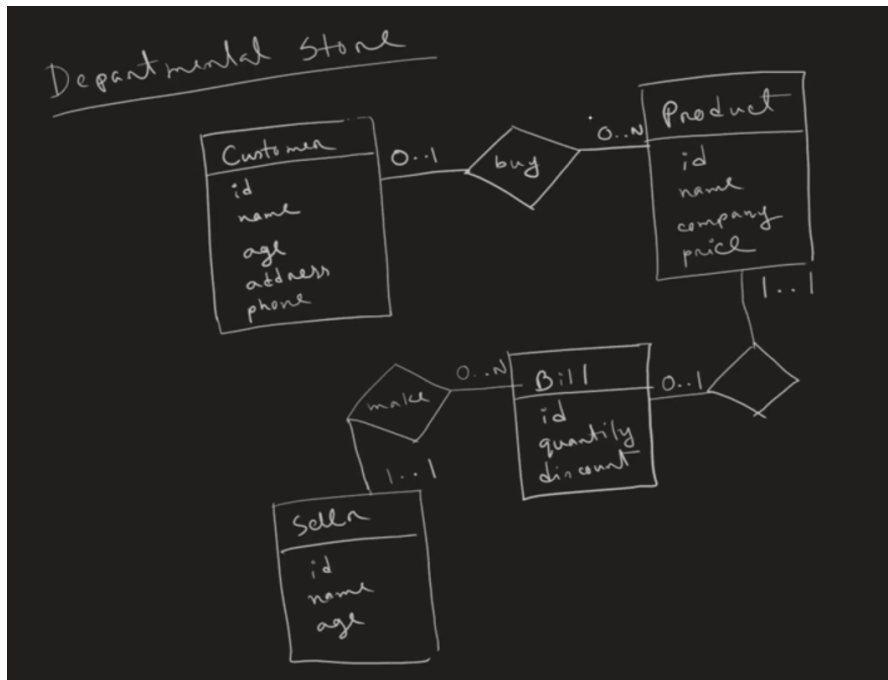 Departmental Store
Customer
id
name
age
address
phone
0..1
buy
0..N
Product
id
name
company
price
1..1
0..1
Bill
id
quantity
discount
0..N
make
1..1
Seller
id
name
age